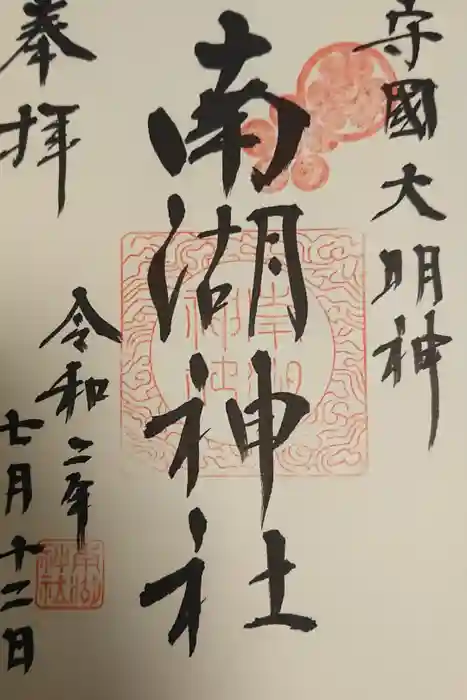 守國大明神
南湖神社
奉拝
令和二年
七月十二日
南湖神社
南湖神社